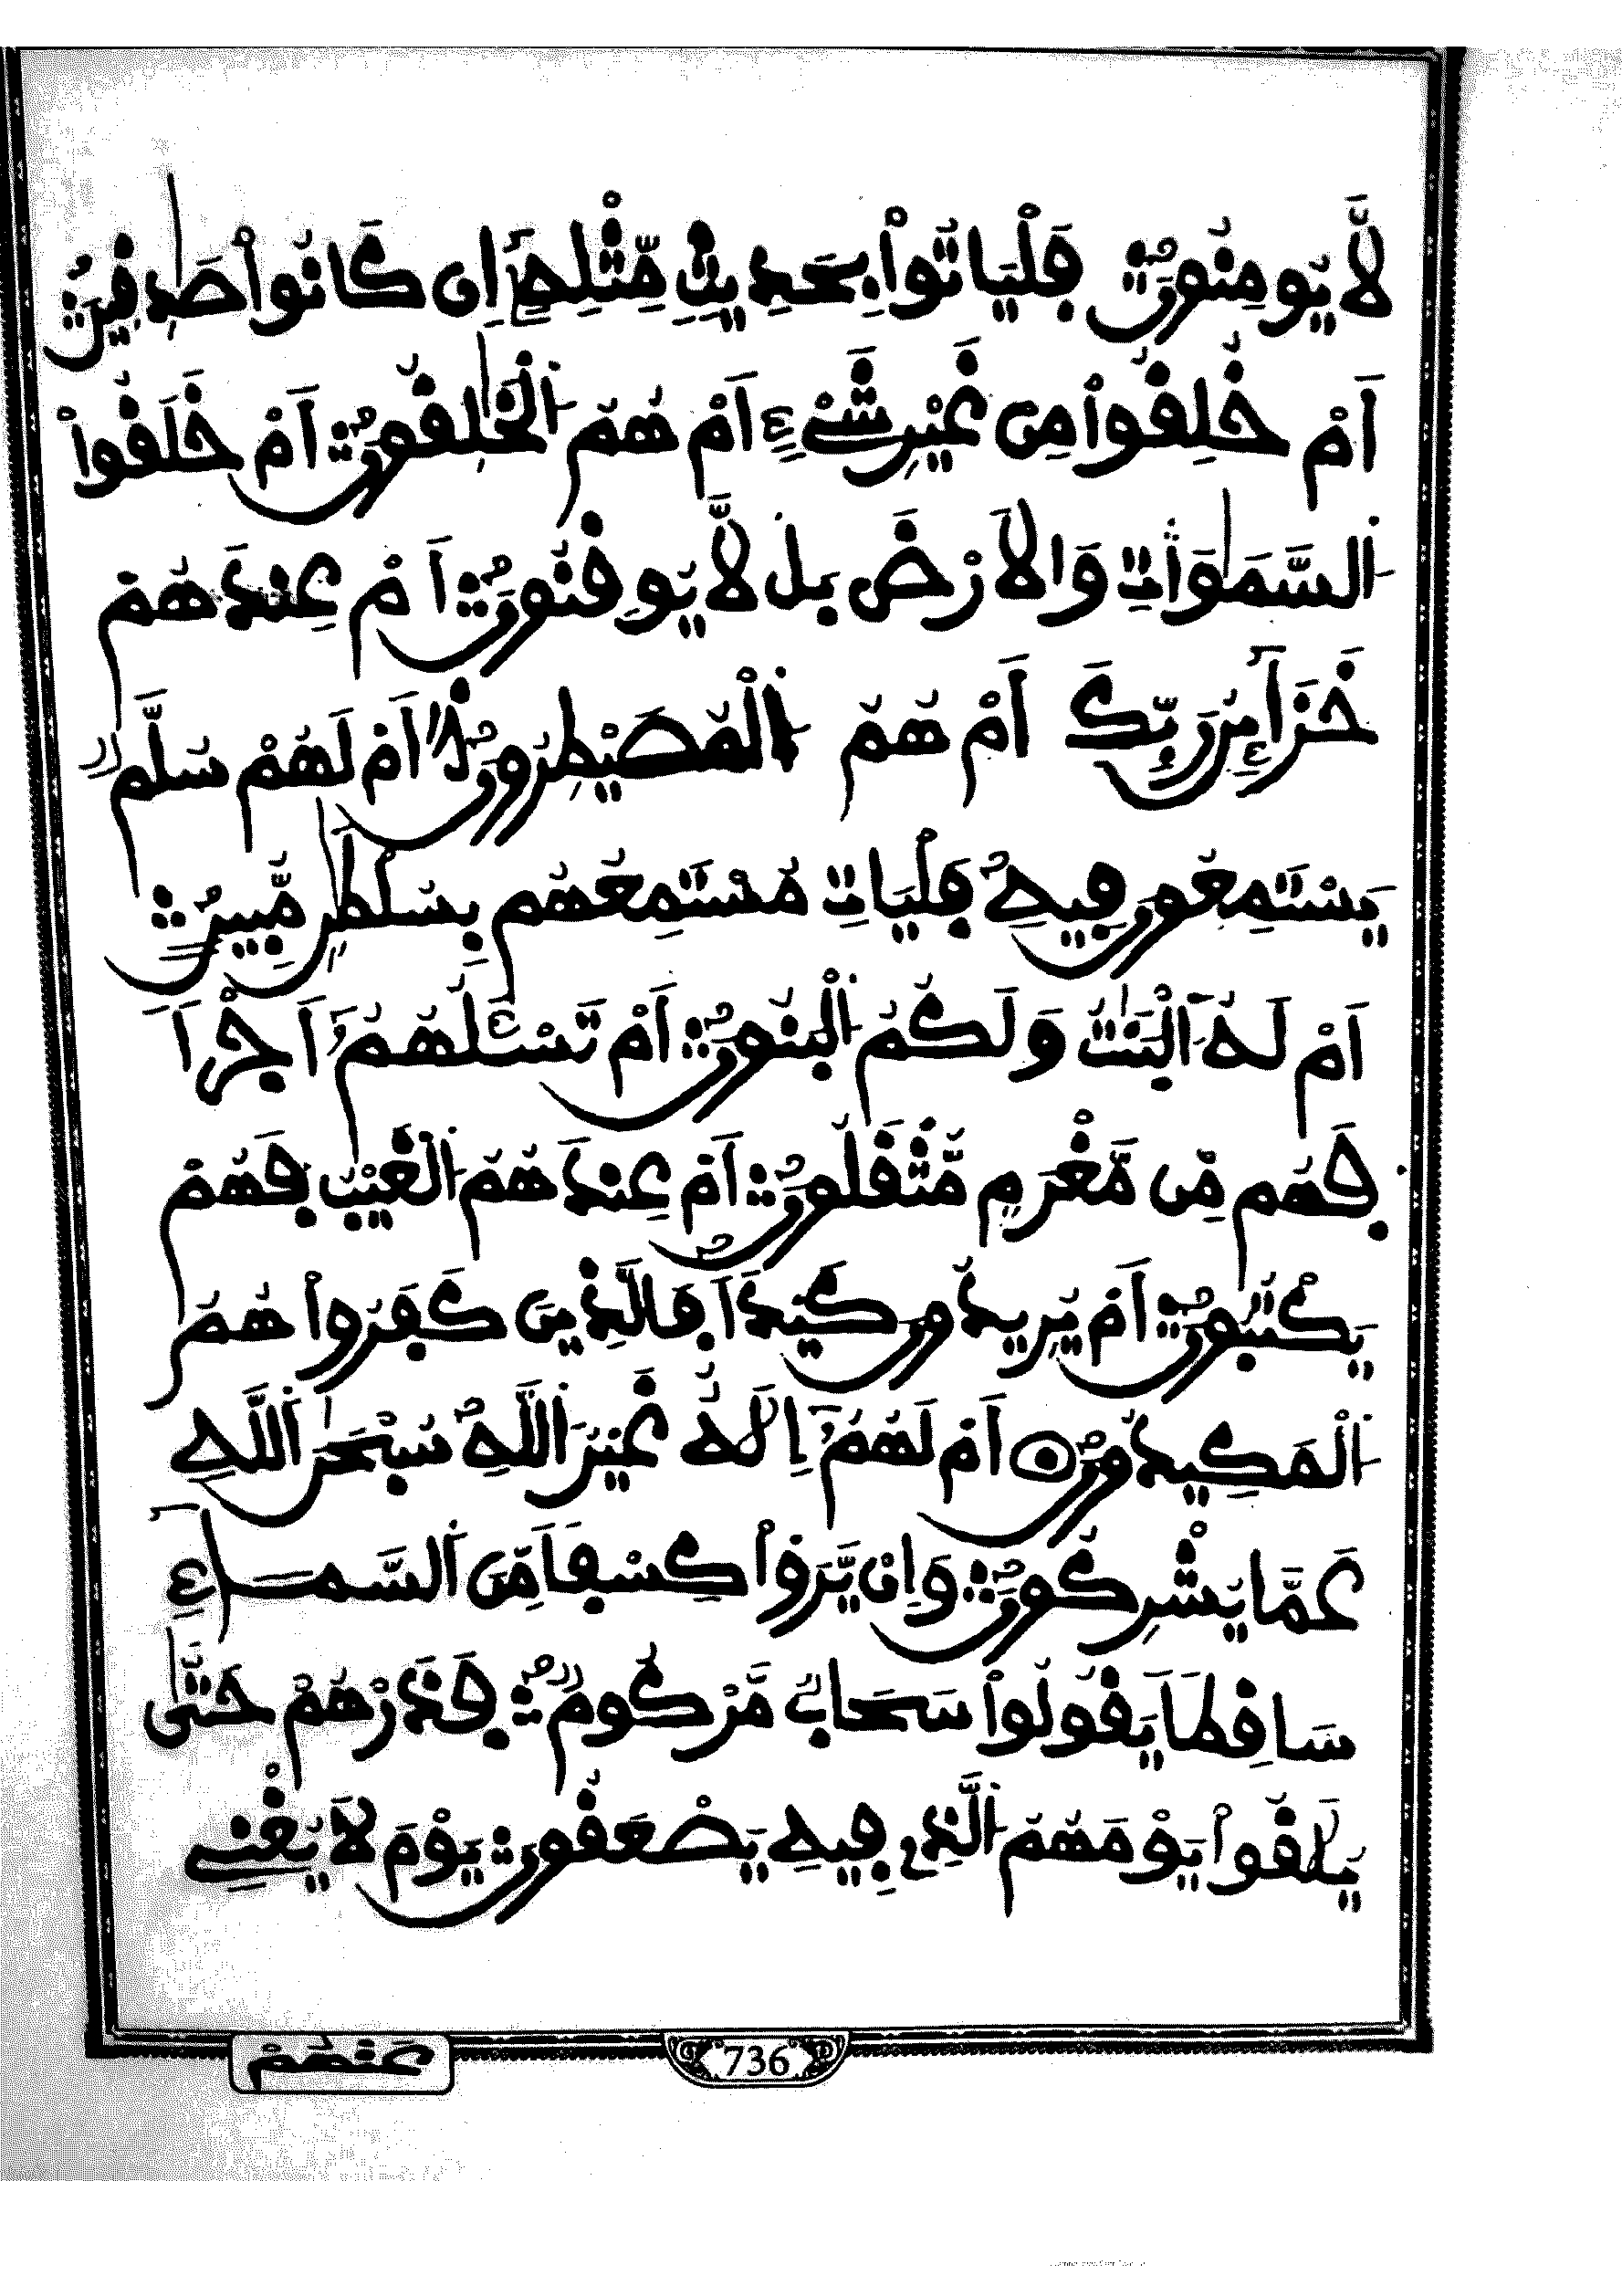 لَّا يُومِنُونَ فَلْيَاتُواْ بِحَدِيثٍ مِّثْلِهِۦٓ إِن كَانُواْ صَٰدِقِينَ
أَمْ خُلِقُواْ مِنْ غَيْرِ شَےْءٍ أَمْ هُمُ اُ۬لْخَٰلِقُونَ أَمْ خَلَقُواْ
اُ۬لسَّمَٰوَٰتِ وَالَارْضَ بَل لَّا يُوقِنُونَ أَمْ عِندَهُمْ
خَزَآئِنُ رَبِّكَ أَمْ هُمُ اُ۬لْمُصَيْطِرُونَ أَمْ لَهُمْ سُلَّمٌ
يَسْتَمِعُونَ فِيهِ فَلْيَاتِ مُسْتَمِعُهُم بِسُلْطَٰنٍ مُّبِينٍ
أَمْ لَهُ اُ۬لْبَنَٰتُ وَلَكُمُ اُ۬لْبَنُونَ أَمْ تَسْـَٔلُهُمُۥٓ أَجْراً
فَهُم مِّن مَّغْرَمٍ مُّثْقَلُونَ أَمْ عِندَهُمُ اُ۬لْغَيْبُ فَهُمْ
يَكْتُبُونَ أَمْ يُرِيدُونَ كَيْداً فَالذِينَ كَفَرُواْ هُمُ
اُ۬لْمَكِيدُونَ أَمْ لَهُمُۥٓ إِلَٰهٌ غَيْرُ اُ۬للَّهِ سُبْحَٰنَ اَ۬للَّهِ
عَمَّا يُشْرِكُونَ وَإِنْ يَّرَوْاْ كِسْفاً مِّنَ اَ۬لسَّمَآءِ
سَاقِطاً يَقُولُواْ سَحَابٌ مَّرْكُومٌ فَذَرْهُمْ حَتَّىٰ
يُلَٰقُواْ يَوْمَهُمُ اُ۬لذِے فِيهِ يَصْعَقُونَ يَوْمَ لَا يُغْنِے
عَنْهُمْ
736